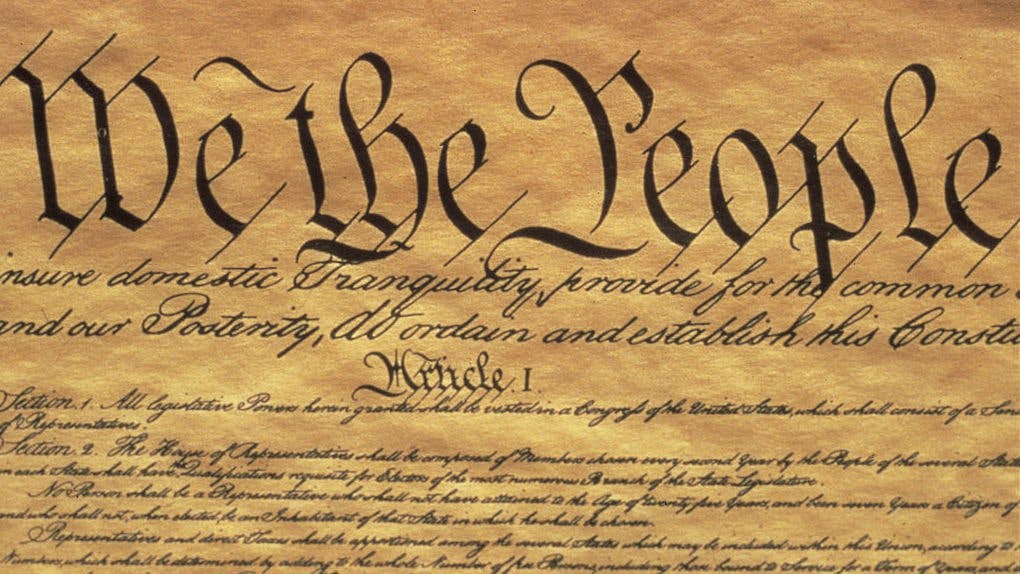 We the People
insure domestic Tranquility, provide for the common
and our Posterity, do ordain and establish this Constitu
Article. I.
Section. 1. All legislative Powers herein granted shall be vested in a Congress of the United States, which shall consist of a Sen
of Representatives.
Section. 2. The House of Representatives shall be composed of Members chosen every second Year by the People of the several State
in each State shall have the Qualifications requisite for Electors of the most numerous Branch of the State Legislature.
No Person shall be a Representative who shall not have attained to the Age of twenty five Years, and been seven Years a Citizen of
and who shall not, when elected, be an Inhabitant of that State in which he shall be chosen.
Representatives and direct Taxes shall be apportioned among the several States which may be included within this Union, according to
Numbers, which shall be determined by adding to the whole Number of free Persons, including those bound to Service for a Term of Years, and